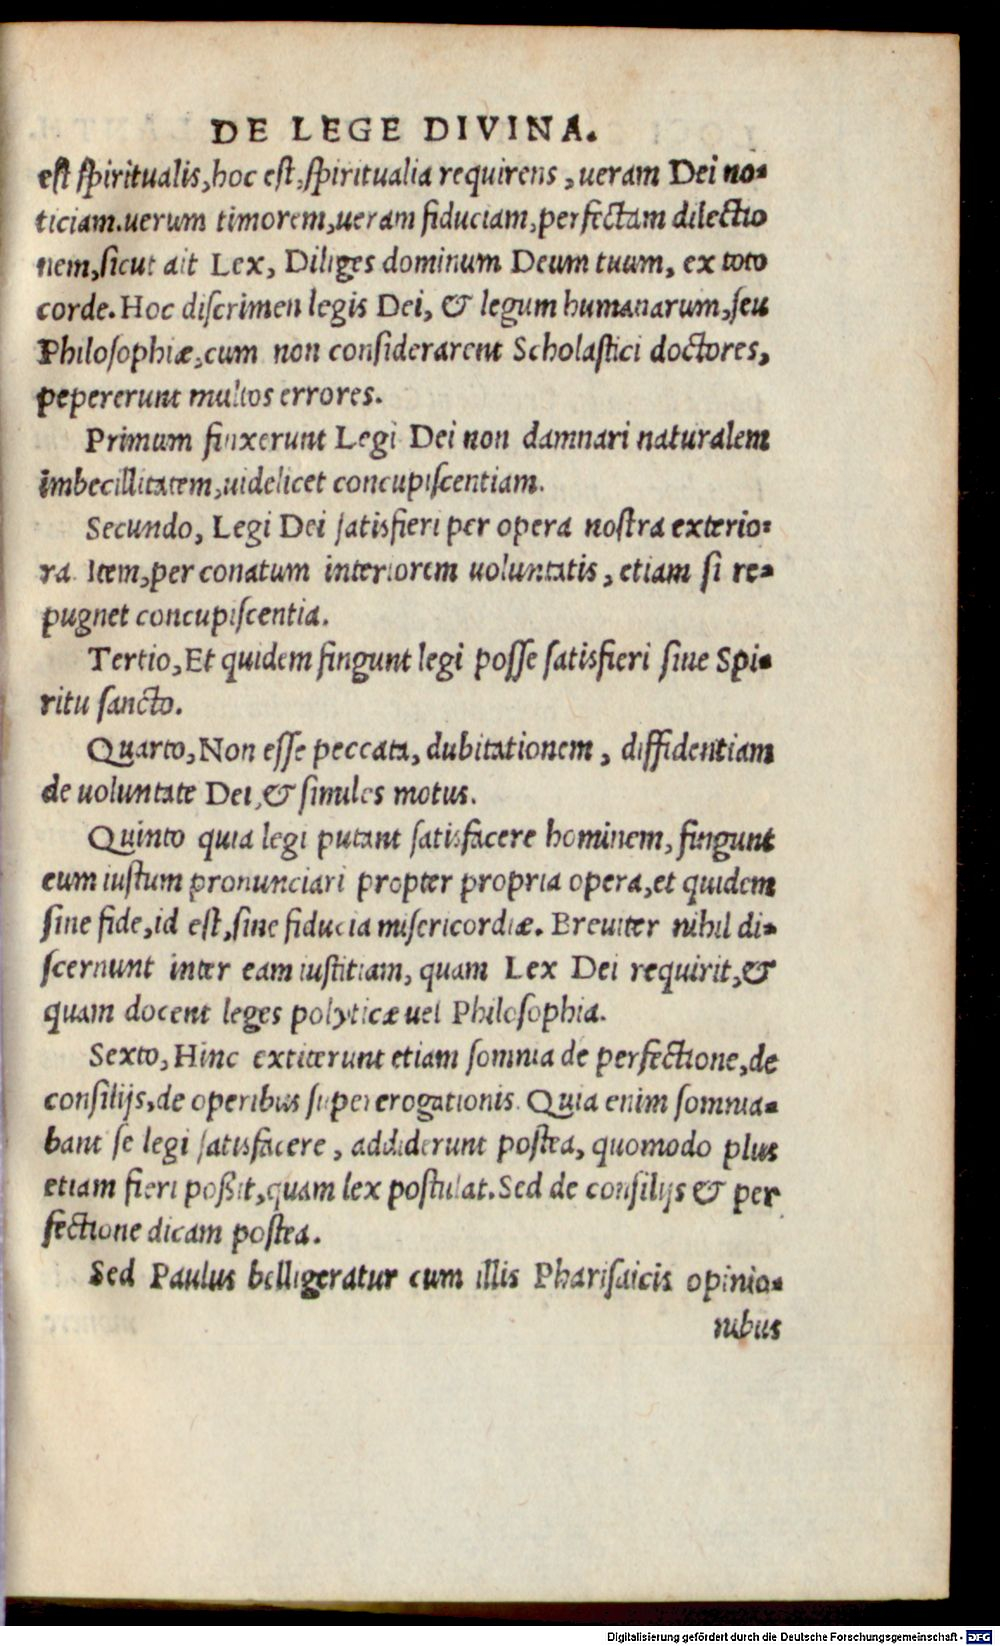 DE LEGE DIVINA.
est spiritualis, hoc est, spiritualia requirens, ueram Dei no-
ticiam. uerum timorem, ueram fiduciam, perfectam dilectio
nem, sicut ait Lex, Diliges dominum Deum tuum, ex toto
corde. Hoc discrimen legis Dei, & legum humanarum, seu
Philosophiæ, cum non considerarent Scholastici doctores,
pepererunt multos errores.
Primum finxerunt Legi Dei non damnari naturalem
imbecillitatem, uidelicet concupiscentiam.
Secundo, Legi Dei satisfieri per opera nostra exterio-
ra Item, per conatum interiorem uoluntatis, etiam si re-
pugnet concupiscentia.
Tertio, Et quidem fingunt legi posse satisfieri sine Spi-
ritu sancto.
Quarto, Non esse peccata, dubitationem, diffidentiam
de uoluntate Dei, & similes motus.
Quinto quia legi putant satisfacere hominem, fingunt
eum iustum pronunciari propter propria opera, et quidem
sine fide, id est, sine fiducia misericordiæ. Breuiter nihil di-
scernunt inter eam iustitiam, quam Lex Dei requirit, &
quam docent leges polyticæ uel Philosophia.
Sexto, Hinc extiterunt etiam somnia de perfectione, de
consilijs, de operibus supererogationis. Quia enim somnia-
bant se legi satisfacere, addiderunt postea, quomodo plus
etiam fieri poßit, quam lex postulat. Sed de consilijs & per
fectione dicam postea.
Sed Paulus belligeratur cum illis Pharisaicis opinio-
nibus
Digitalisierung gefördert durch die Deutsche Forschungsgemeinschaft - DFG